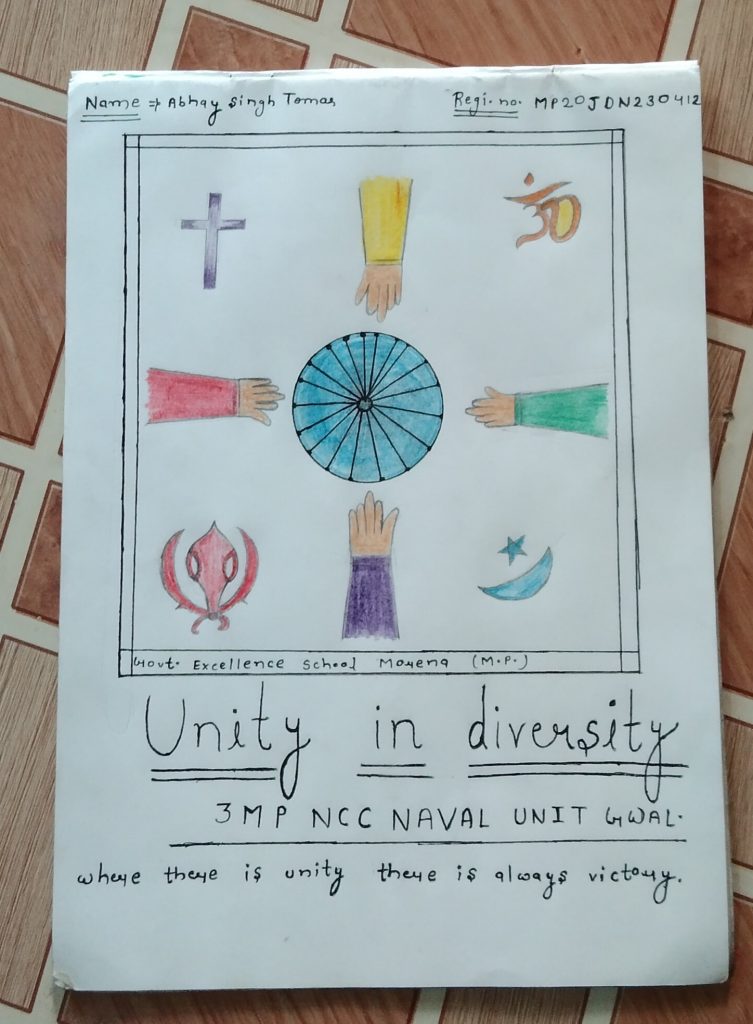 Name ⇒ Abhay Singh Tomar Regi. no. MP20JDN230412
Govt. Excellence School Morena (M.P.)
Unity in diversity
3 MP NCC NAVAL UNIT GWAL.
where there is unity there is always victory.